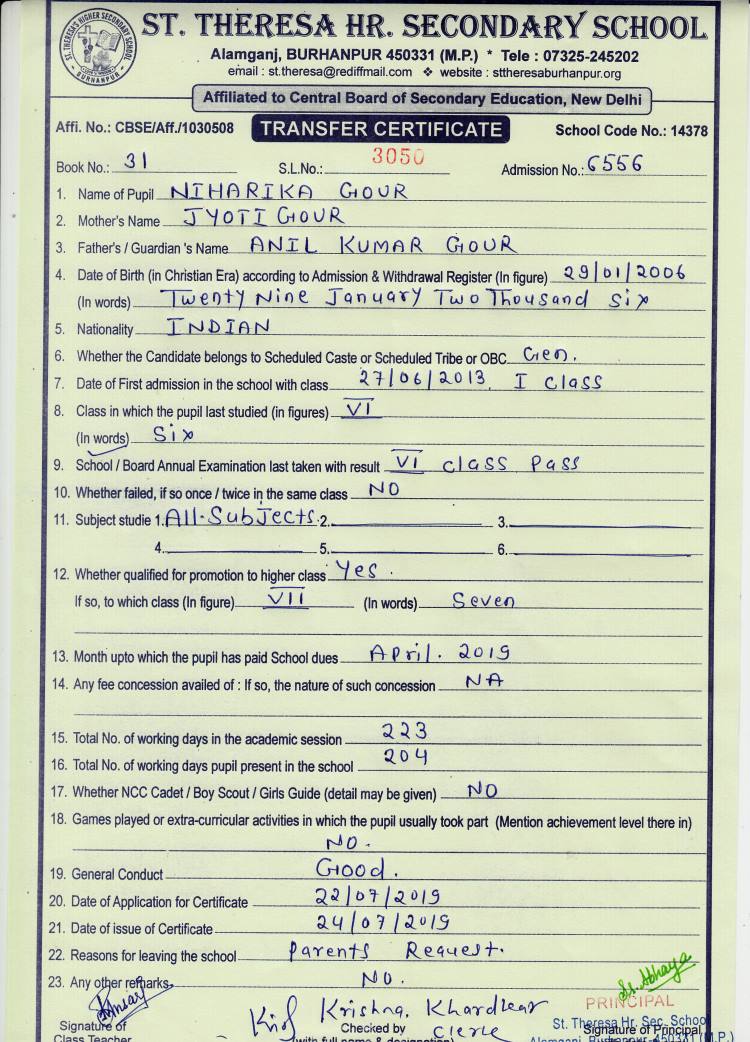 ST. THERESA HR. SECONDARY SCHOOL
Alamganj, BURHANPUR 450331 (M.P.) * Tele : 07325-245202
email : st.theresa@rediffmail.com ❖ website : sttheresaburhanpur.org
Affiliated to Central Board of Secondary Education, New Delhi
Affi. No.: CBSE/Aff./1030508 TRANSFER CERTIFICATE School Code No.: 14378
Book No.: 31 S.L.No.: 3050 Admission No.: 6556
1. Name of Pupil NIHARIKA GOUR
2. Mother's Name JYOTI GOUR
3. Father's / Guardian 's Name ANIL KUMAR GOUR
4. Date of Birth (in Christian Era) according to Admission & Withdrawal Register (In figure) 29/01/2006
(In words) Twenty Nine January Two Thousand Six
5. Nationality INDIAN
6. Whether the Candidate belongs to Scheduled Caste or Scheduled Tribe or OBC Gen.
7. Date of First admission in the school with class 27/06/2013. I class
8. Class in which the pupil last studied (in figures) VI
(In words) Six
9. School / Board Annual Examination last taken with result VI class Pass
10. Whether failed, if so once / twice in the same class NO
11. Subject studie 1. All-Subjects. 2. 3.
4. 5. 6.
12. Whether qualified for promotion to higher class Yes.
If so, to which class (In figure) VII (In words) Seven
13. Month upto which the pupil has paid School dues April. 2019
14. Any fee concession availed of : If so, the nature of such concession NA
15. Total No. of working days in the academic session 223
16. Total No. of working days pupil present in the school 204
17. Whether NCC Cadet / Boy Scout / Girls Guide (detail may be given) NO
18. Games played or extra-curricular activities in which the pupil usually took part (Mention achievement level there in)
NO.
19. General Conduct Good.
20. Date of Application for Certificate 22/07/2019
21. Date of issue of Certificate 24/07/2019
22. Reasons for leaving the school Parents Request.
23. Any other remarks NO.
Krishna Khardkar Sr. Abhaya
PRINCIPAL
Signature of Checked by St. Theresa Hr. Sec. School Signature of Principal
Class Teacher (with full name & designation) Alamganj, Burhanpur-450331 (M.P.)